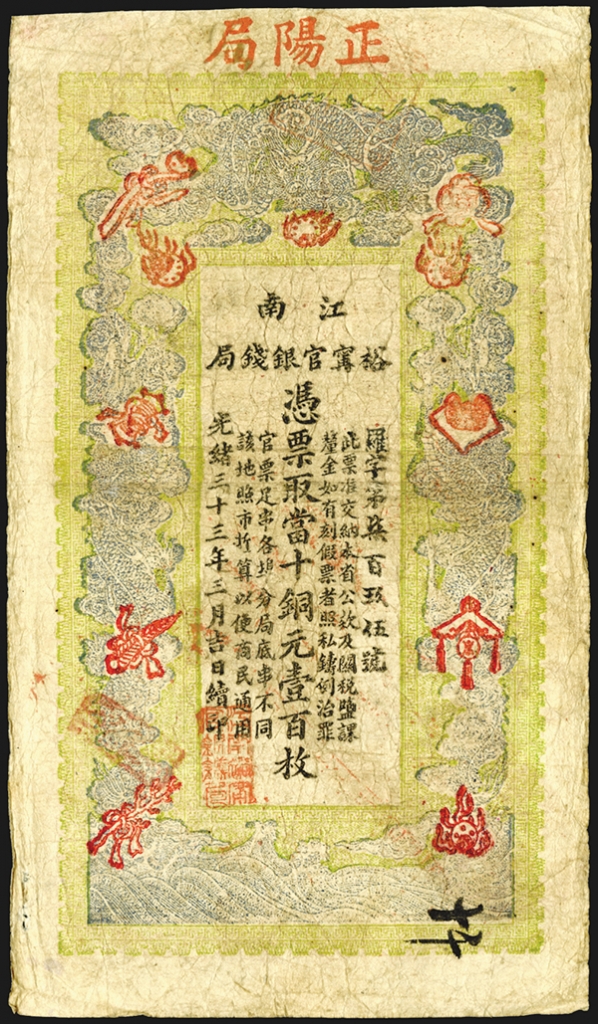 正陽局
江南
裕寧官銀錢局
羅字第柒百玖伍號
此票准交納本省公款及關稅鹽課
釐金如有刻假票者照私鑄例治罪
憑票取當十銅元壹百枚
官票足串各埠分局底串不同
該地照市折算以便商民通用
光緒三十三年三月吉日續